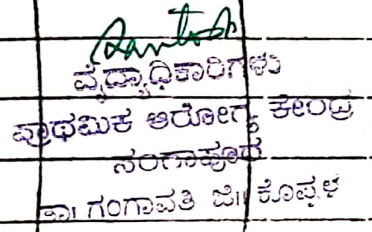 ವೈದ್ಯಾಧಿಕಾರಿಗಳು
ಪ್ರಾಥಮಿಕ ಆರೋಗ್ಯ ಕೇಂದ್ರ
ಸಂಗಾಪೂರ
ತಾ। ಗಂಗಾವತಿ ಜಿ॥ ಕೊಪ್ಪಳ